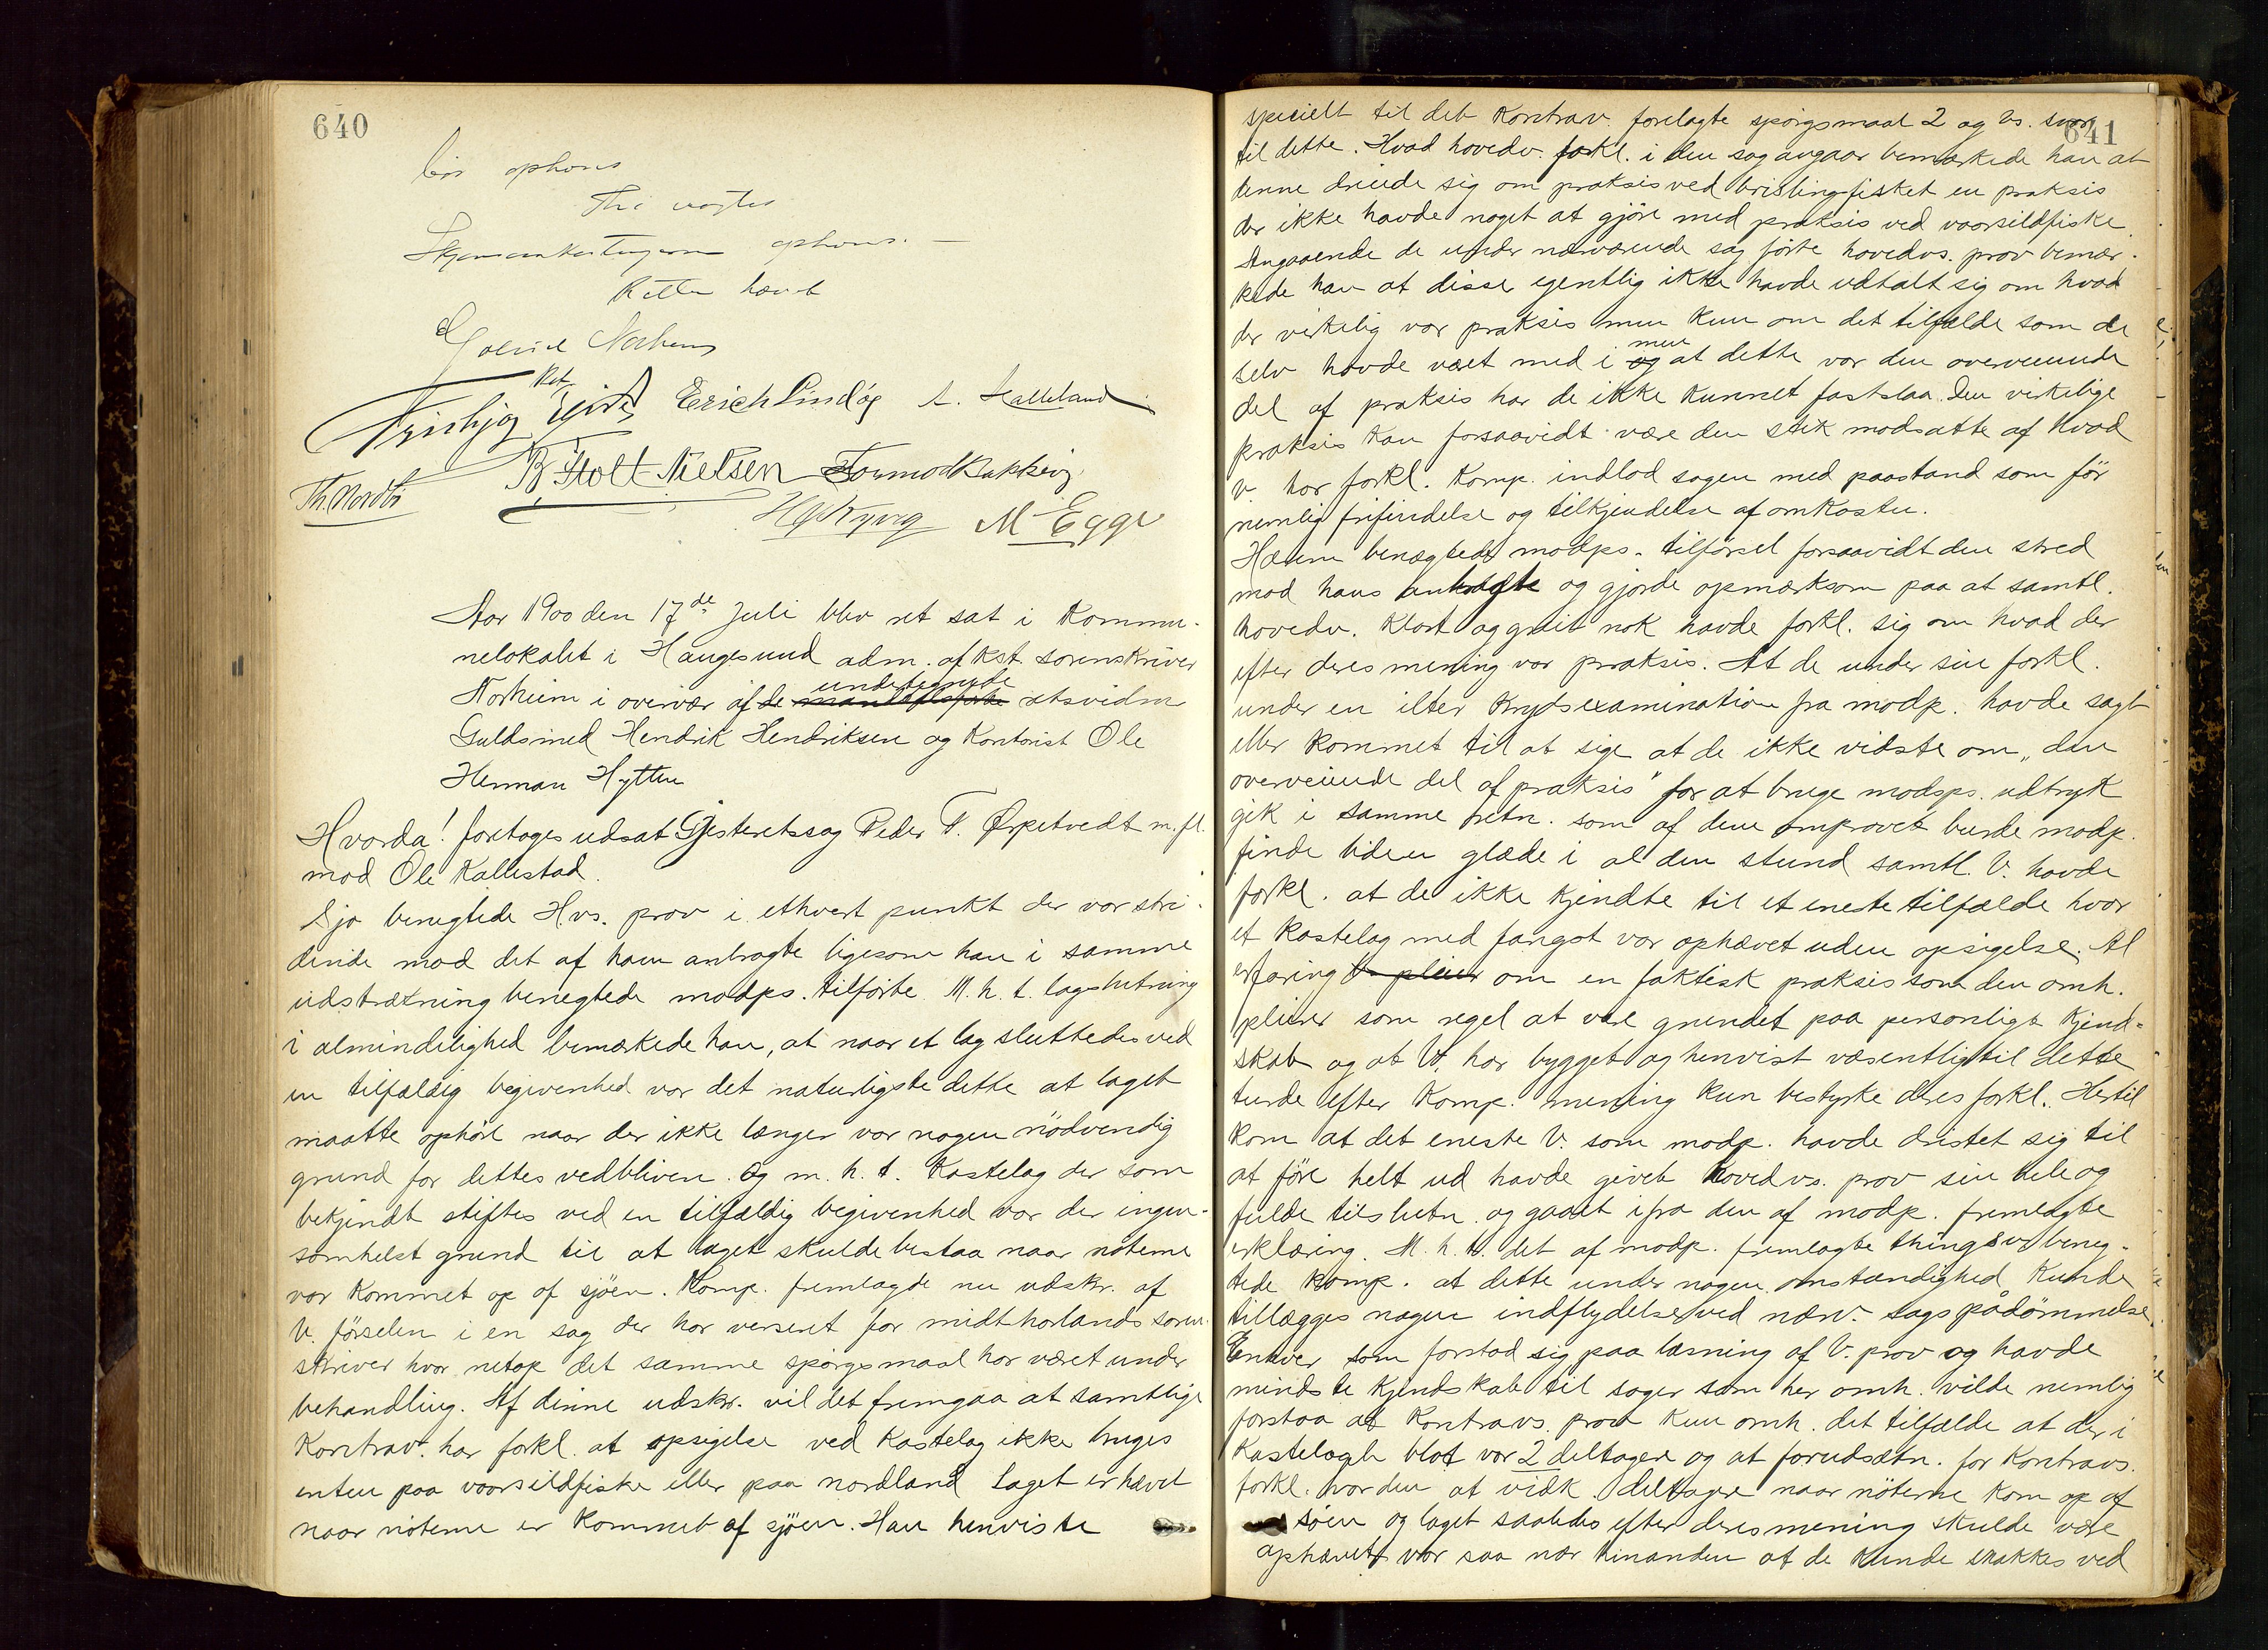 640
bør ophøves
Thi vogtes
ophøves. —
Retten hævet
Gabriel Norheim
Erich Lindøe A. Halleland
B Stolt-Nielsen Tormod Bakkevig
Th. Nordbø
M Egge
Aar 1900 den 17de Juli blev ret sat i Kommu-
nelokalet i Haugesund adm. af kst. sorenskriver
undertegnede
Norheim i overvær af de retsvidner
Guldsmed Hendrik Hendriksen og Kontorist Ole
Herman Hytten
Hvorda! foretoges udsat Gjesteretssag Peder T. Ørpetvedt m. fl.
mod Ole Kallestad.
Sjo benegtede H.vs. prov i ethvert punkt der var stri-
dende mod det af ham anbragte ligesom han i samme
udstrækning benegtede modps. tilførte. M. h. t. lagslutning
i almindelighed bemærkede han, at naar et lag sluttedes ved
en tilfældig begivenhed var det naturligste dette at laget
maatte ophøre naar der ikke længer var nogen nödvendig
grund for dettes vedbliven. Og m. h. t. Kastelag der som
bekjendt stiftes ved en tilfældig begivenhed var der ingen-
somhelst grund til at laget skulde bestaa naar nöterne
var kommet op af sjöen. Komp. fremlagde nu udskr. af
V. førselen i en sag der har verseret for midthorlands soren-
skriver hvor netop det samme spørgsmaal har været under
behandling. Af denne udskr. vil det fremgaa at samtlige
Kontrav. har forkl. at opsigelse ved Kastelag ikke bruges
enten paa vaarsildfiske eller paa nordland Laget er hævet
naar nöterne er kommet af sjöen. Han henviste
641
specielt til det Kontrav. forelagte spørgsmaal 2 og vs. svar
til dette. Hvad hovedv. forkl. i den sag angaar bemærkede han at
denne dreiede sig om praksis ved brislingfisket en praksis
der ikke havde noget at gjöre med praksis ved vaarsildfiske.
Angaaende de under nærværende sag førte hovedvs. prov bemær-
kede han at disse egentlig ikke havde udtalt sig om hvad
der virkelig var praksis men kun om det tilfælde som de
men
selv havde været med i og at dette var den overveiende
del af praksis har de ikke kunnet fastslaa. Den virkelige
praksis kan forsaavidt være den stik modsatte af hvad
v. har forkl. Komp. indlod sagen med paastand som før
nemlig frifindelse og tilkjendelse af omkoster.
benægtede modps. tilførsel forsaavidt den stred
mod hans anbragte og gjorde opmærksom paa at samtl.
hovedv. klart og greit nok havde forkl. sig om hvad der
efter deres mening var praksis. At de under sin forkl.
under en ilter krydsexamination fra modp. havde sagt
eller kommet til at sige at de ikke vidste om „den
overveiende del af praksis" for at bruge modps. udtryk
gik i samme retn. som af dem omprovet burde modp.
finde liden glæde i al den stund samtl. V. havde
forkl. at de ikke kjendte til et eneste tilfælde hvor
et kastelag med fangst var ophævet uden opsigelse. Al
erfaring om en faktisk praksis som den omh.
pleier som regel at være grundet paa personligt kjend-
skab og at V. har bygget og henvist væsentlig til dette
turde efter Komp. mening kun bestyrke deres forkl. Hertil
kom at det eneste V. som modp. havde dristet sig til
at føre helt ud havde givet hovedvs. prov sin hele og
fulde tilslutn. og gaaet ifra den af modp. fremlagte
erklæring. M. h. t. det af modp. fremlagte thingsv. beneg-
tede komp. at dette under nogen omstændighed kunde
tillægges nogen indflydelse ved nærv. sags pådömmelse.
Enhver som forstod sig paa læsning af V. prov og havde
mindste kjendskab til sager som her omh. vilde nemlig
forstaa at Kontravs. prov kun omh. det tilfælde at der i
Kastelaget blot var 2 deltagere og at forudsætn. for Kontravs.
forkl. var den at vedk. deltagere naar nöterne kom op af
søen og laget saaledes efter deres mening skulde være
ophævet var saa nær hinanden at de kunde snakkes ved